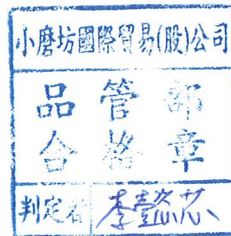 小磨坊國際貿易(股)公司
品管部
合格章
判定者 李懿芯